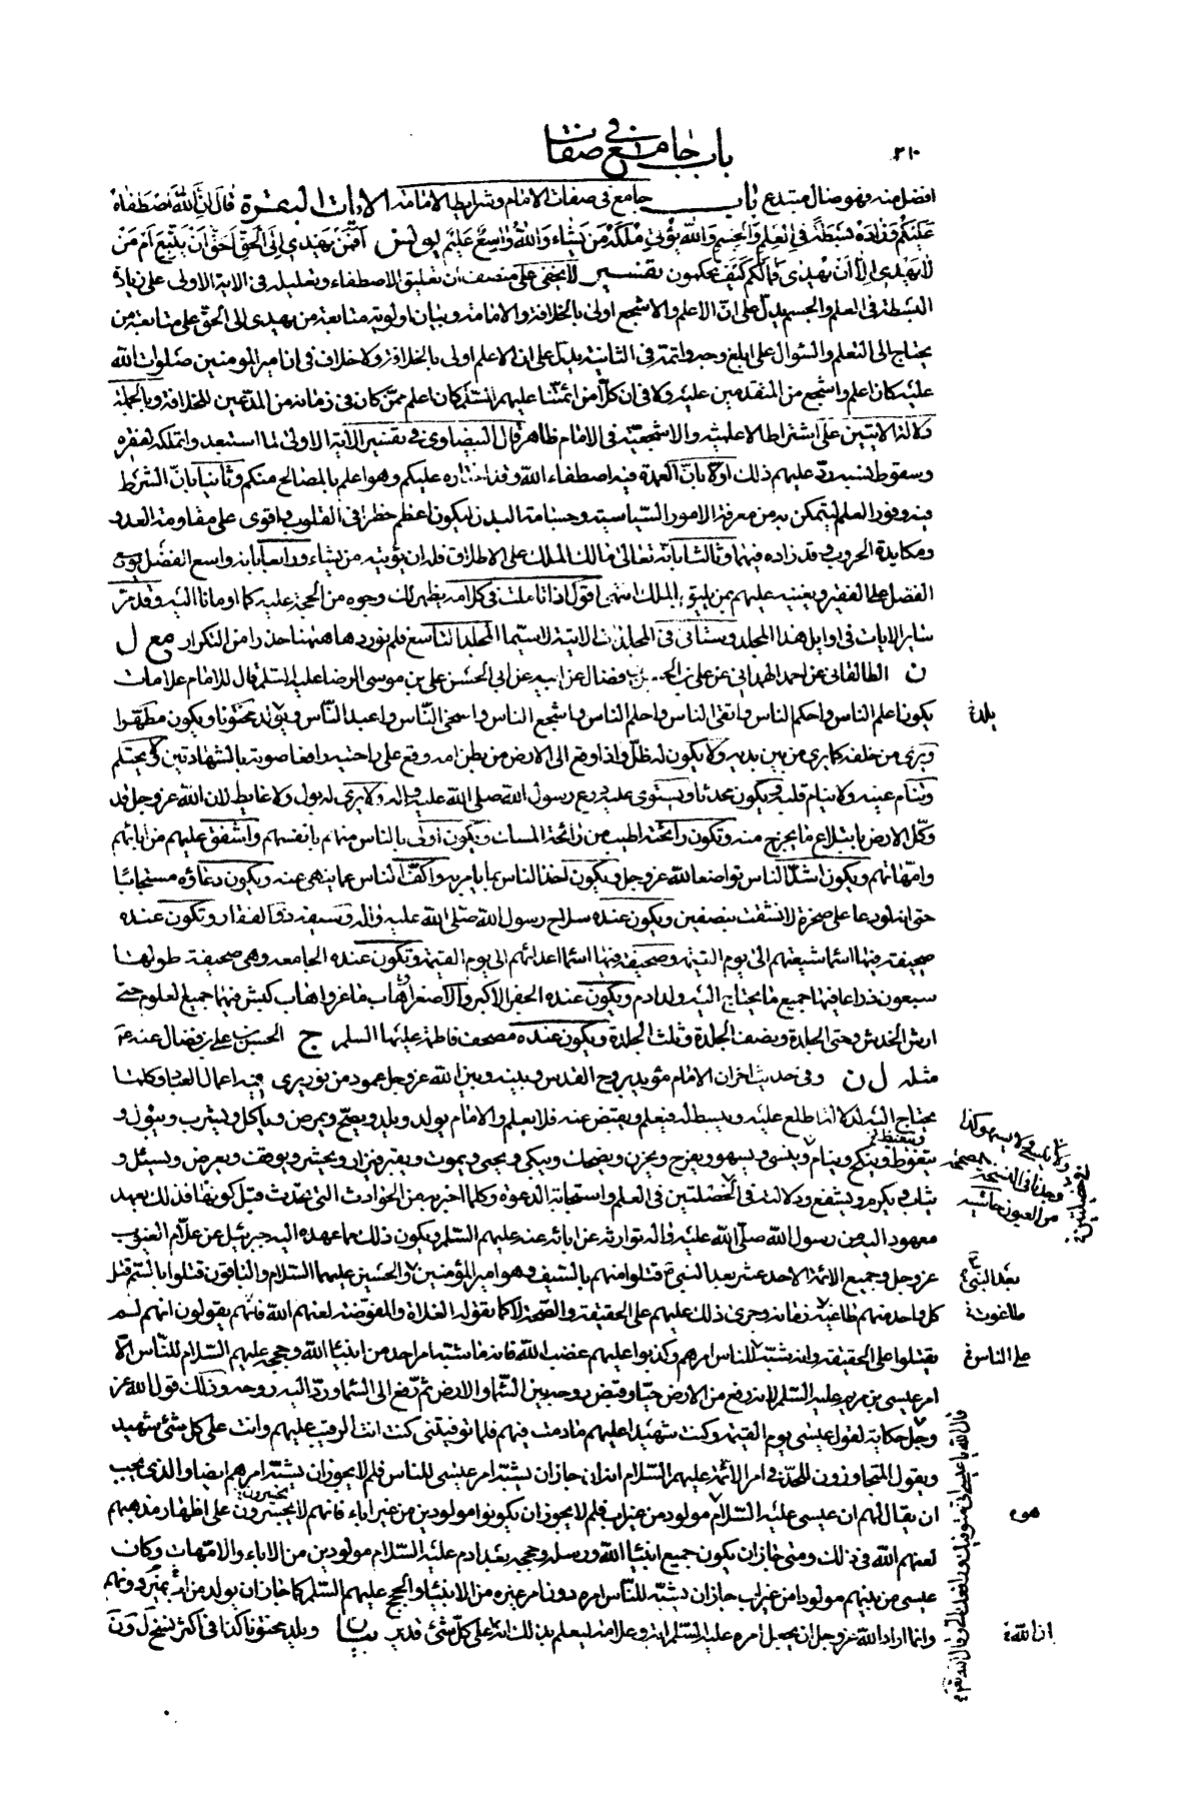 باب جامع في صفات
٢١٠
افضل منه فهو ضال مبتدع باب جامع في صفات الامام وشرايط الامامة الايات البقرة قال ان الله اصطفاه
عليكم وزاده بسطة في العلم والجسم والله يؤتي ملكه من يشاء والله واسع عليم يونس افمن يهدي الى الحق احق ان يتبع ام من
لا يهدي الا ان يهدى فما لكم كيف تحكمون تفسير لا يخفى على منصف ان تعليق الاصطفاء وتعليله في الاية الاولى على زيادة
البسطة في العلم والجسم يدل على ان الاعلم والاشجع اولى بالخلافة والامامة وبيان اولوية متابعة من يهدي الى الحق على متابعة من
يحتاج الى التعلم والسؤال على ابلغ وجه واتمه في الثانية يدل على ان الاعلم اولى بالخلافة ولا خلاف في ان امير المومنين صلوات الله
عليه كان اعلم واشجع من المتقدمين عليه ولا في ان كلا من ائمتنا عليهم السلم كان اعلم ممن كان في زمانه من المدعين للخلافة وبالجملة
دلالة الايتين على اشتراط الاعلمية والاشجعية في الامام ظاهرة قال البيضاوي في تفسير الاية الاولى لما استبعدوا تملكه لفقره
وسقوط نسبه رد عليهم ذلك اولا بان العمدة فيه اصطفاء الله وقد اختاره عليكم وهو اعلم بالمصالح منكم وثانيا بان الشرط
فيه وفور العلم ليتمكن به من معرفة الامور السياسية وجسامة البدن ليكون اعظم خطرا في القلوب واقوى على مقاومة العدو
ومكايدة الحروب وقد زاده فيهما وثالثا بانه تعالى مالك الملك على الاطلاق فله ان يؤتيه من يشاء ورابعا بانه واسع الفضل يوسع
الفضل على الفقير ويغنيه عليم بمن يليق بالملك انتهى اقول اذا تاملت في كلامه يظهر لك وجوه من الحجة عليه كما اومانا اليه وقد مر
ساير الايات في اوايل هذا المجلد وستاتي في المجلدات الاتية لا سيما المجلد التاسع فلم نوردها ههنا حذرا من التكرار مع ل
ن الطالقاني عن احمد الهمداني عن علي بن الحسن بن فضال عن ابيه عن ابي الحسن علي بن موسى الرضا عليه السلم قال للامام علامات
يكون اعلم الناس واحكم الناس واتقى الناس واحلم الناس واشجع الناس واسخى الناس واعبد الناس ويولد مختونا ويكون مطهرا
ويرى من خلفه كما يرى من بين يديه ولا يكون له ظل واذا وقع الى الارض من بطن امه وقع على راحتيه رافعا صوته بالشهادتين ولا يحتلم
وتنام عينه ولا ينام قلبه ويكون محدثا ويستوي عليه درع رسول الله صلى الله عليه واله ولا يرى له بول ولا غايط لان الله عز وجل قد
وكل الارض بابتلاع ما يخرج منه وتكون رائحته اطيب من رائحة المسك ويكون اولى بالناس منهم بانفسهم واشفق عليهم من ابائهم
وامهاتهم ويكون اشد الناس تواضعا لله عز وجل ويكون اخذ الناس بما يامر به واكف الناس عما ينهى عنه ويكون دعاؤه مستجابا
حتى انه لو دعا على صخرة لانشقت بنصفين ويكون عنده سلاح رسول الله صلى الله عليه واله وسيفه ذو الفقار وتكون عنده
صحيفة فيها اسماء شيعتهم الى يوم القيمة وصحيفة فيها اسماء اعدائهم الى يوم القيمة وتكون عنده الجامعه وهي صحيفة طولها
سبعون ذراعا فيها جميع ما يحتاج اليه ولد ادم ويكون عنده الجفر الاكبر والاصغر اهاب ماعز واهاب كبش فيهما جميع العلوم حتى
ارش الخدش وحتى الجلدة ونصف الجلدة وثلث الجلدة ويكون عنده مصحف فاطمة عليها السلم ج الحسن بن علي بن فضال عنه ع
مثله ل ن وفي حديث اخر ان الامام مؤيد بروح القدس وبينه وبين الله عز وجل عمود من نور يرى فيه اعمال العباد وكلما
يحتاج اليه لدلالة اطلع عليه ويبسط له فيعلم ويقبض عنه فلا يعلم والامام يولد ويلد ويصح ويمرض وياكل ويشرب ويبول و
يتغوط وينكح وينام وينسى ويسهو ويفرح ويحزن ويضحك ويبكي ويحيى ويموت ويقبر فيزار ويحشر ويوقف ويعرض ويسئل و
يثاب ويكرم ويشفع ودلالته في الخصلتين في العلم واستجابة الدعوة وكلما اخبر به من الحوادث التي تحدث قبل كونها فذلك بعهد
معهود اليه من رسول الله صلى الله عليه واله توارثه عن ابائه عنه عليهم السلم ويكون ذلك مما عهده اليه جبرئيل عن علام الغيوب
عز وجل وجميع الائمة الاحد عشر بعد النبي ص قتلوا منهم بالسيف وهو امير المؤمنين والحسين عليهما السلام والباقون قتلوا بالسم قتل
كل واحد منهم طاغية زمانه وجرى ذلك عليهم على الحقيقة والصحة لا كما يقوله الغلاة والمفوضة لعنهم الله فانهم يقولون انهم لم
يقتلوا على الحقيقة وانه شبه للناس امرهم وكذبوا عليهم غضب الله فانه ما شبه امر احد من انبياء الله وحججه عليهم السلام للناس الا
امر عيسى بن مريم عليه السلم لانه رفع من الارض حيا وقبض روحه بين السماء والارض ثم رفع الى السماء ورد اليه روحه وذلك قول الله عز
وجل حكاية لقول عيسى يوم القيمة وكنت شهيدا عليهم ما دمت فيهم فلما توفيتني كنت انت الرقيب عليهم وانت على كل شئ شهيد
ويقول المتجاوزون للحد في امر الائمة عليهم السلام انه ان جاز ان يشبه امر عيسى للناس فلم لا يجوز ان يشبه امرهم ايضا والذي يجب
ان يقال لهم ان عيسى عليه السلام مولود من غير اب فلم لا يجوز ان يكونوا مولودين من غير اباء فانهم لا يجسرون على اظهار مذهبهم
لعنهم الله في ذلك ومتى جاز ان يكون جميع انبياء الله ورسله وحججه بعد ادم عليه السلام مولودين من الاباء والامهات وكان
عيسى من بينهم مولودا من غير اب جاز ان يشبه للناس امره دون امر غيره من الانبياء والحجج عليهم السلم كما جاز ان يولد من غير اب دونهم
وانما اراد الله عز وجل ان يجعل امره عليه السلم اية وعلامة ليعلم بذلك انه على كل شئ قدير بيان ويلد مختونا كذا في اكثر نسخ ل و ن
يلد خ
وجدنا في النسخة
من العيون حاشيه
بعد النبي
طاغوت خ
على الناس خ
هو
ان الله خ